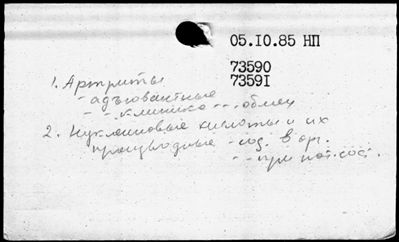 05.10.85 НП
73590
73591
1. Артриты
- адъювантные
- - клинико - - - обмен
2. Нуклеиновые кислоты и их
производные - сод. в орг.
- - при пат. сост.